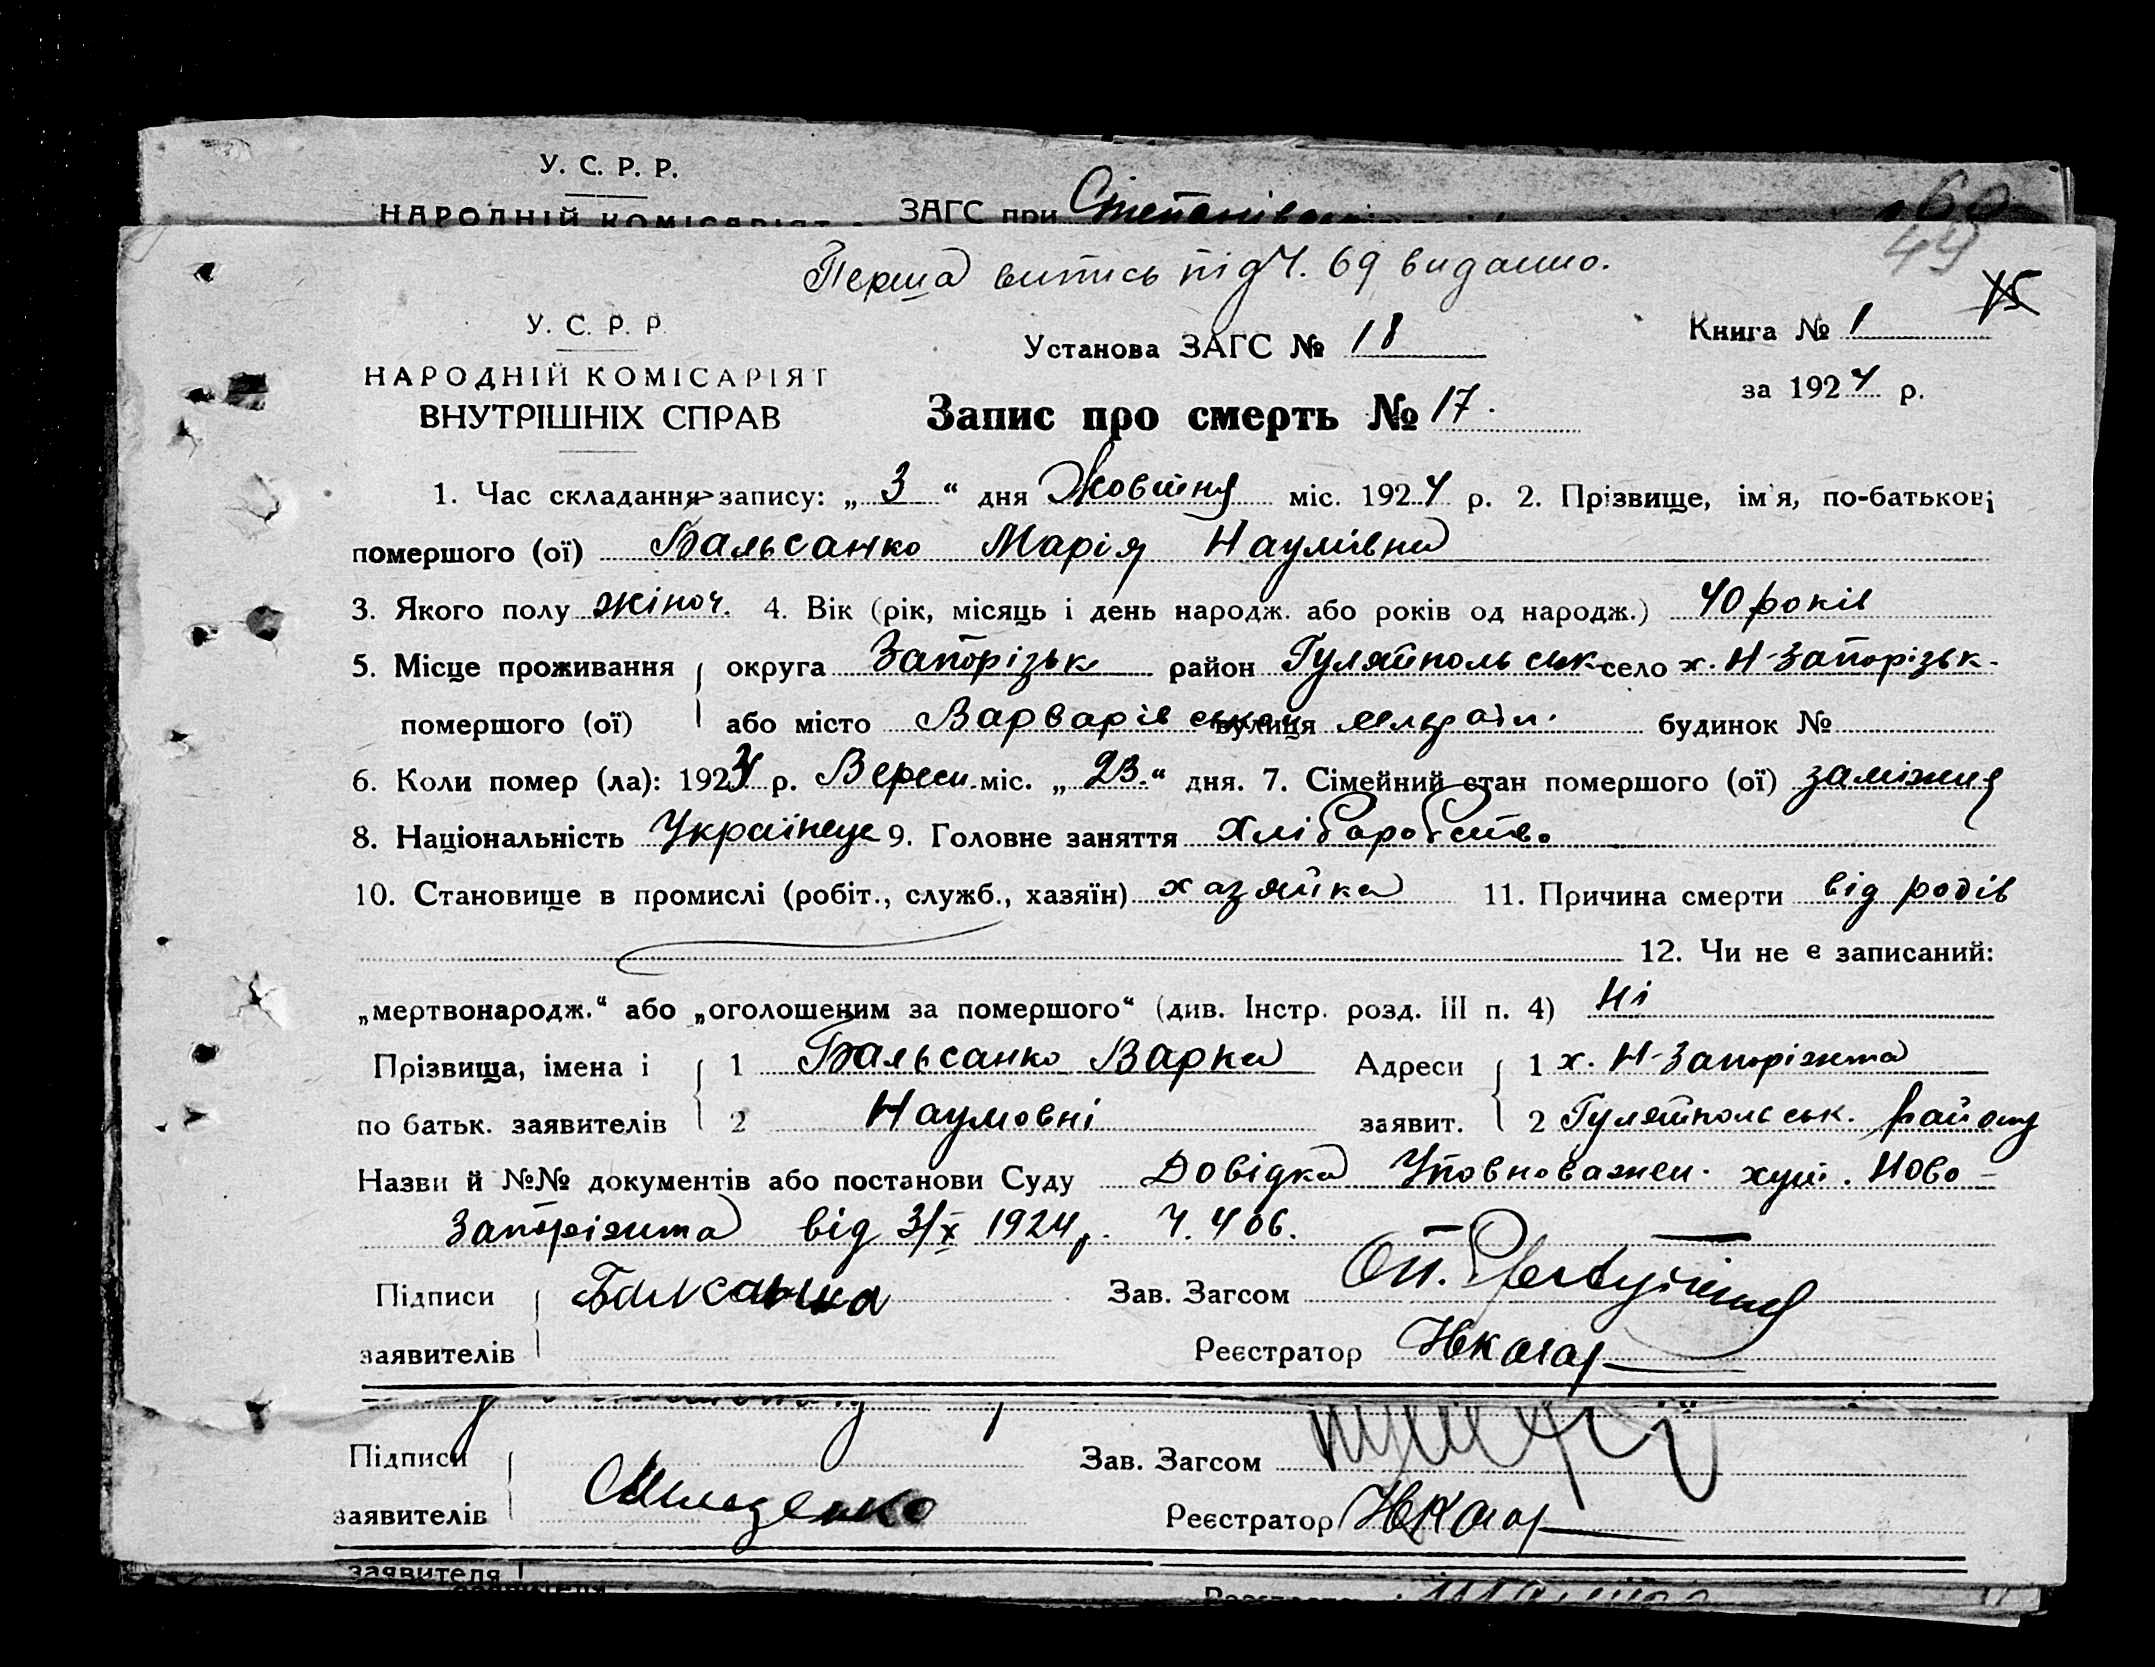 У. С. Р. Р.
НАРОДНІЙ КОМІСАРІЯТ ЗАГС при
49
Перша випись під Ч. 69 видано.
15
У. С. Р. Р
НАРОДНІЙ КОМІСАРІЯТ
ВНУТРІШНІХ СПРАВ
Установа ЗАГС № 18
Книга № 1
за 1924 р.
Запис про смерть № 17.
1. Час складання запису: „ 3 “ дня Жовтня міс. 1924 р. 2. Прізвище, ім'я, по-батькові
помершого (ої) Бальсанко Марія Наумівна
3. Якого полу жіноч. 4. Вік (рік, місяць і день народж. або років од народж.) 40 років
5. Місце проживання округа Запорізьк район Гуляйпольськ село х. Н-Запорізьк-
помершого (ої) або місто Варварівськ вулиця будинок №
6. Коли помер (ла): 1924 р. Вересн. міс. „ 23. “ дня. 7. Сімейний стан помершого (ої) заміжня
8. Національність Українец 9. Головне заняття Хліборобство
10. Становище в промислі (робіт., служб., хазяїн) хазяйка 11. Причина смерти від родів
12. Чи не є записаний:
„мертвонародж.“ або „оголошеним за помершого“ (див. Інстр. розд. III п. 4) Ні
Прізвища, імена і 1 Бальсанко Варка Адреси 1 х. Н-Запоріжжа
по батьк. заявителів 2 Наумовні заявит. 2 Гуляйпольськ. району
Назви й №№ документів або постанови Суду Довідка Уповноважен. хут. Ново-
Запоріжжа від 3/X 1924 р. Ч. 406.
Підписи Зав. Загсом
заявителів Реєстратор
Підписи Зав. Загсом
заявителів Реєстратор
заявителя